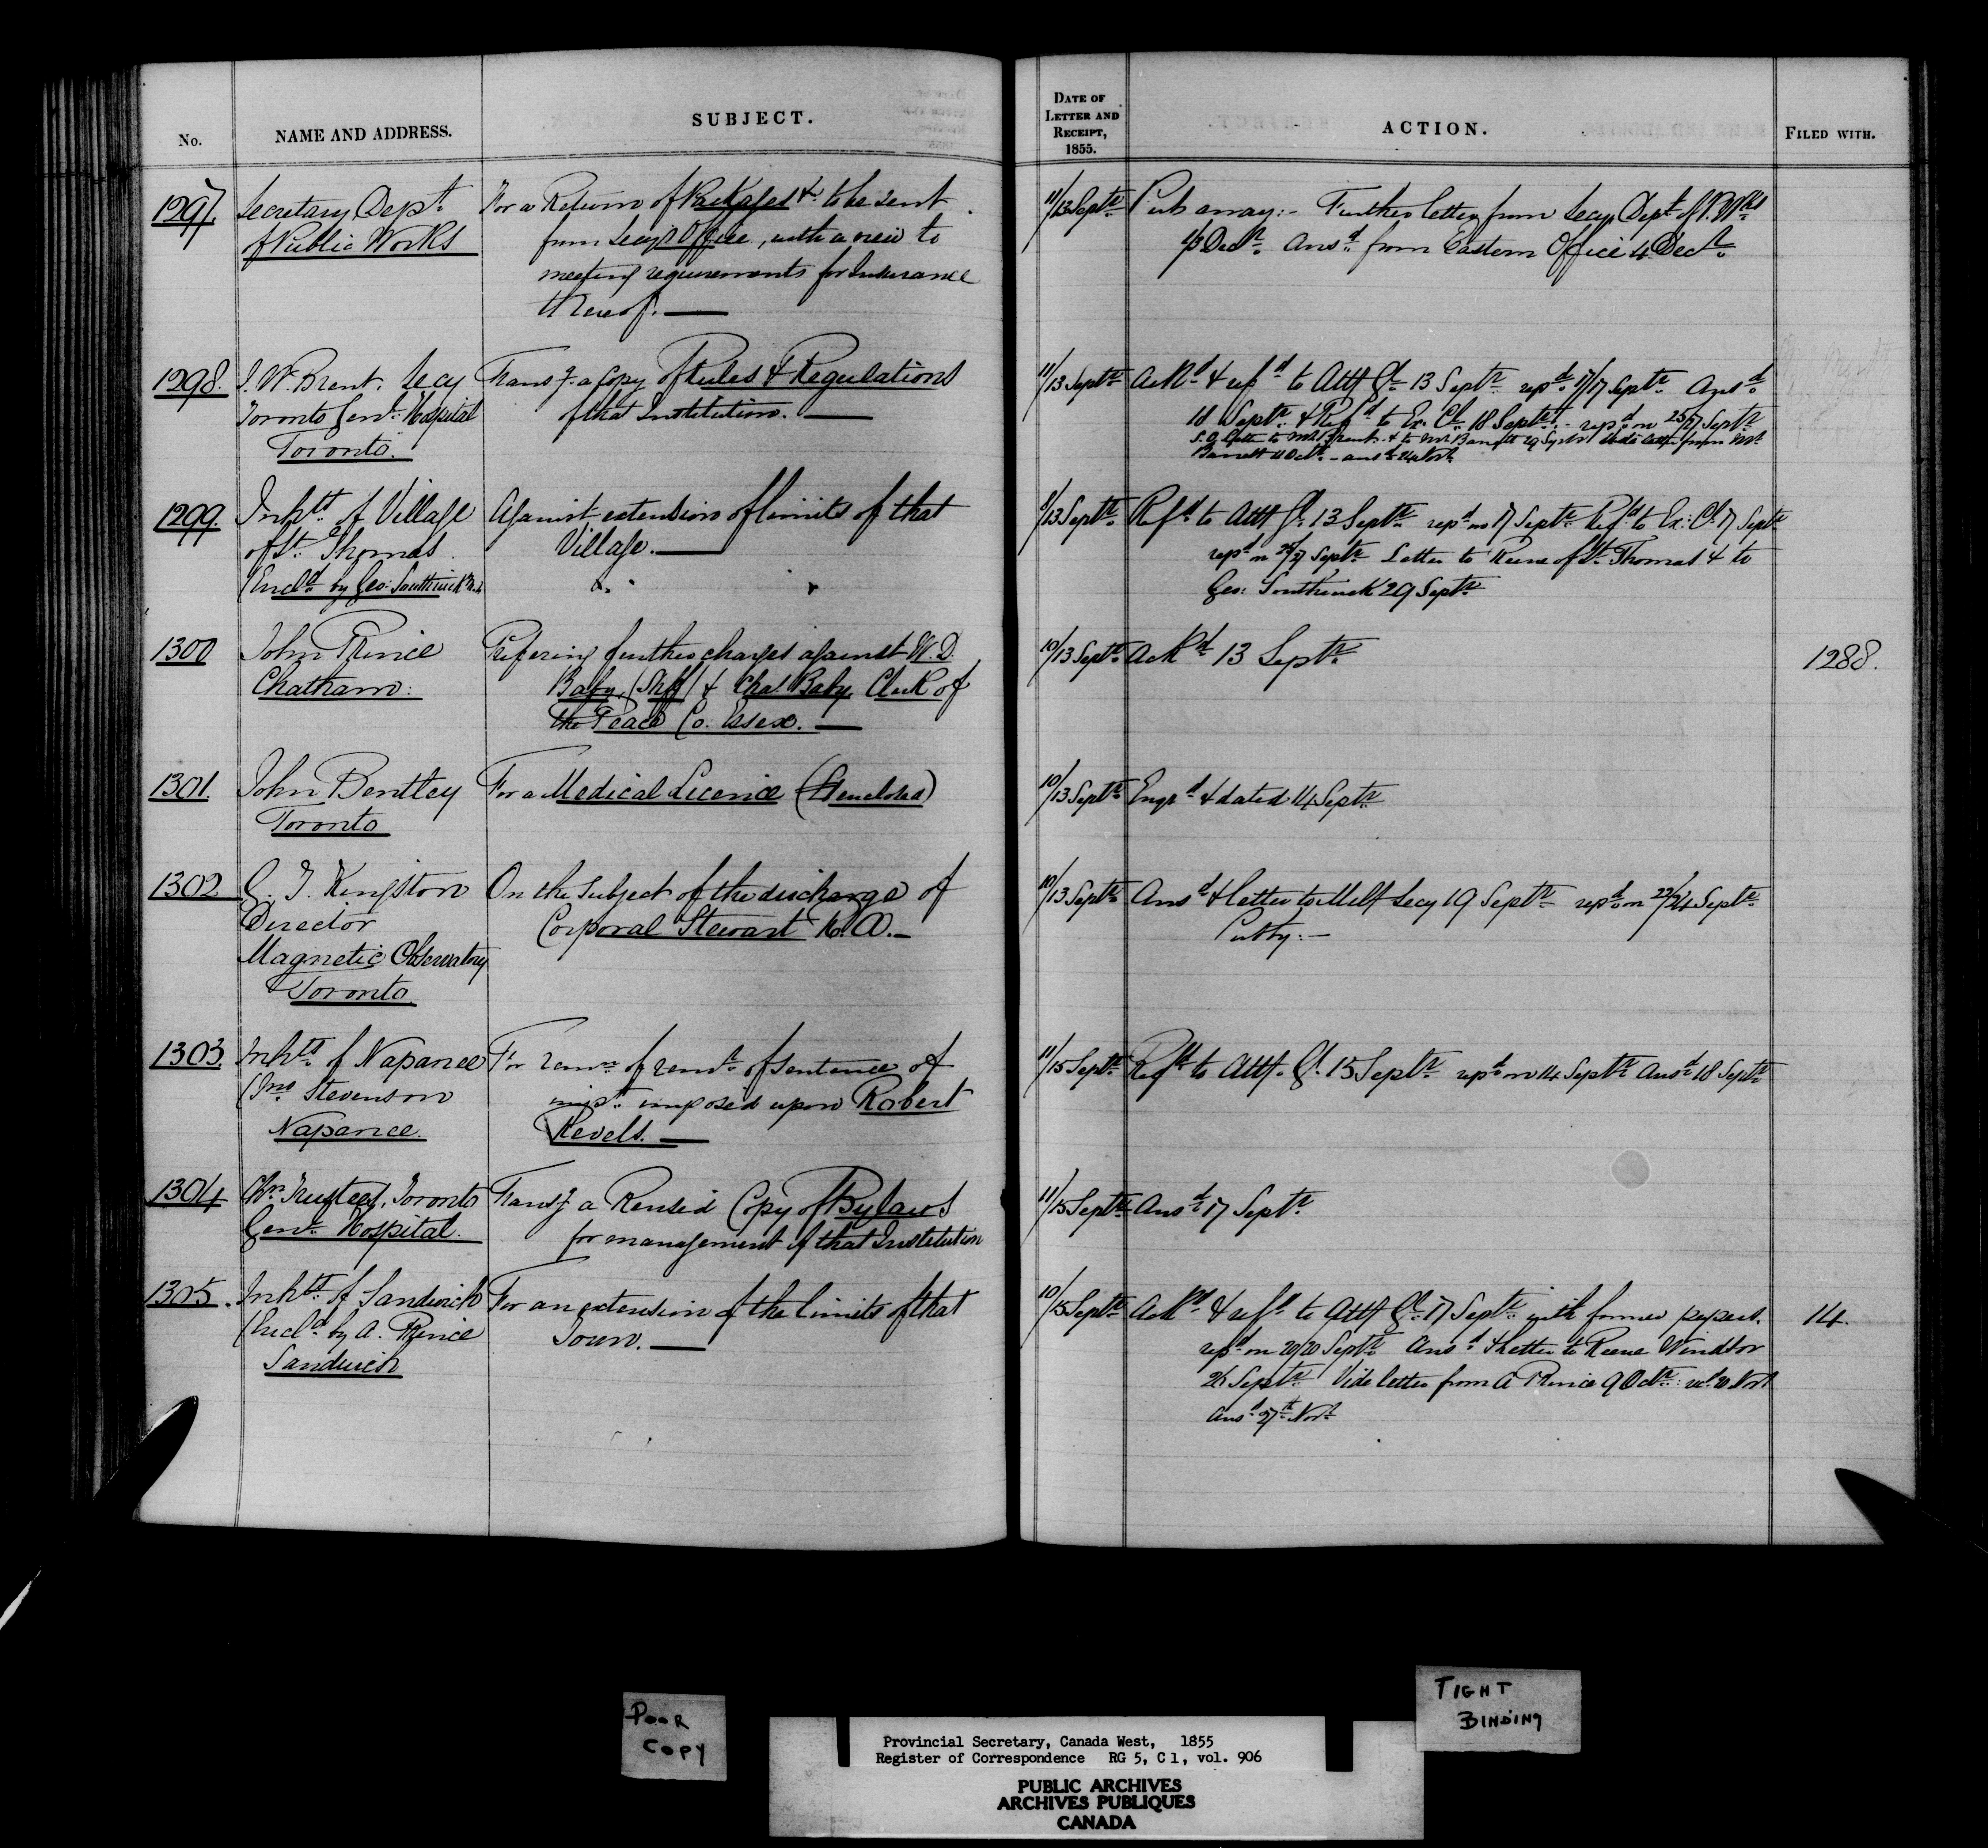 No.
NAME AND ADDRESS.
SUBJECT.
DATE OF
LETTER AND
RECEIPT,
1855.
ACTION.
FILED WITH.
1297.
Secretary Dept.
of Public Works
For a Return of Packages &c. to be sent
from Secy's Office, with a view to
meeting requirements for Insurance
thereof. —
11/13 Septr.
Put away:- Further letter from Secy Dept. of P. Wks
Decr. Ansd. from Eastern Office 4 Decr.
1298.
J. W. Brent. Secy
Toronto Genl. Hospital
Toronto.
Transg. a Copy of Rules & Regulations
of that Institution. —
11/13 Septr.
Ackd. & refd. to Atty Gl. 13 Septr. repd. 17/17 Septr. Ansd.
18 Septr. & Refd. to Ex. Cl. 18 Septr. - repd. on 25/27 Septr.
Letter to Mr. Brent & to Mr. Barrett 29 Septr. Vide letter from Mr.
Barrett 11 Octr. - ansd. 24 Novr.
1299.
Inhts. of Village
of St. Thomas.
(Encld. by Geo: Southwick
Against extension of limits of that
Village. —
11/13 Septr.
Refd. to Atty Gl. 13 Septr. repd. on 17 Septr. Refd. to Ex: Cl. 17 Septr.
repd. on 27 Septr. Letter to Reeve of St. Thomas & to
Geo: Southwick 29 Septr.
1300
John Prince
Chatham:
Prefering further charges against W. D.
Baby, (Shff) & Chas. Baby, Clerk of
the Peace Co. Essex. —
10/13 Septr.
Ackd. 13 Septr.
1288.
1301.
John Bentley
Toronto
For a Medical Licence ( enclosed)
10/13 Septr.
Engd. & dated 14 Septr.
1302
G. T. Kingston
Director
Magnetic Observatory
Toronto
On the Subject of the discharge of
Corporal Stewart R. A. —
10/13 Septr.
Ansd. & letter to Mily Secy 19 Septr. repd. on 22/24 Septr.
Put by: —
1303.
Inhts. of Napanee
(Jno. Stevenson
Napanee.
For remn. of remr. of sentence of
impt. imposed upon Robert
Revels. —
11/15 Septr.
Refd. to Atty. Gl. 15 Septr. repd. on 14 Septr. Ansd. 18 Septr.
1304
Chn. Trustees, Toronto
Genl. Hospital.
Transg. a Revised Copy of Bylaws
for management of that Institution
11/15 Septr.
Ansd. 17 Septr.
1305.
Inhts. of Sandwich
(Encld. by A. Prince
Sandwich
For an extension of the limits of that
Town. —
10/15 Septr.
Ackd. & refd. to Atty Gl. 17 Septr. with former papers.
repd. on 20/20 Septr. Ansd. & letter to Reeve Windsor
26 Septr. Vide letter from A Prince 9 Octr. : Novr
Ansd. 27th Novr
14.
POOR
COPY
TIGHT
BINDING
Provincial Secretary, Canada West, 1855
Register of Correspondence RG 5, C 1, vol. 906
PUBLIC ARCHIVES
ARCHIVES PUBLIQUES
CANADA